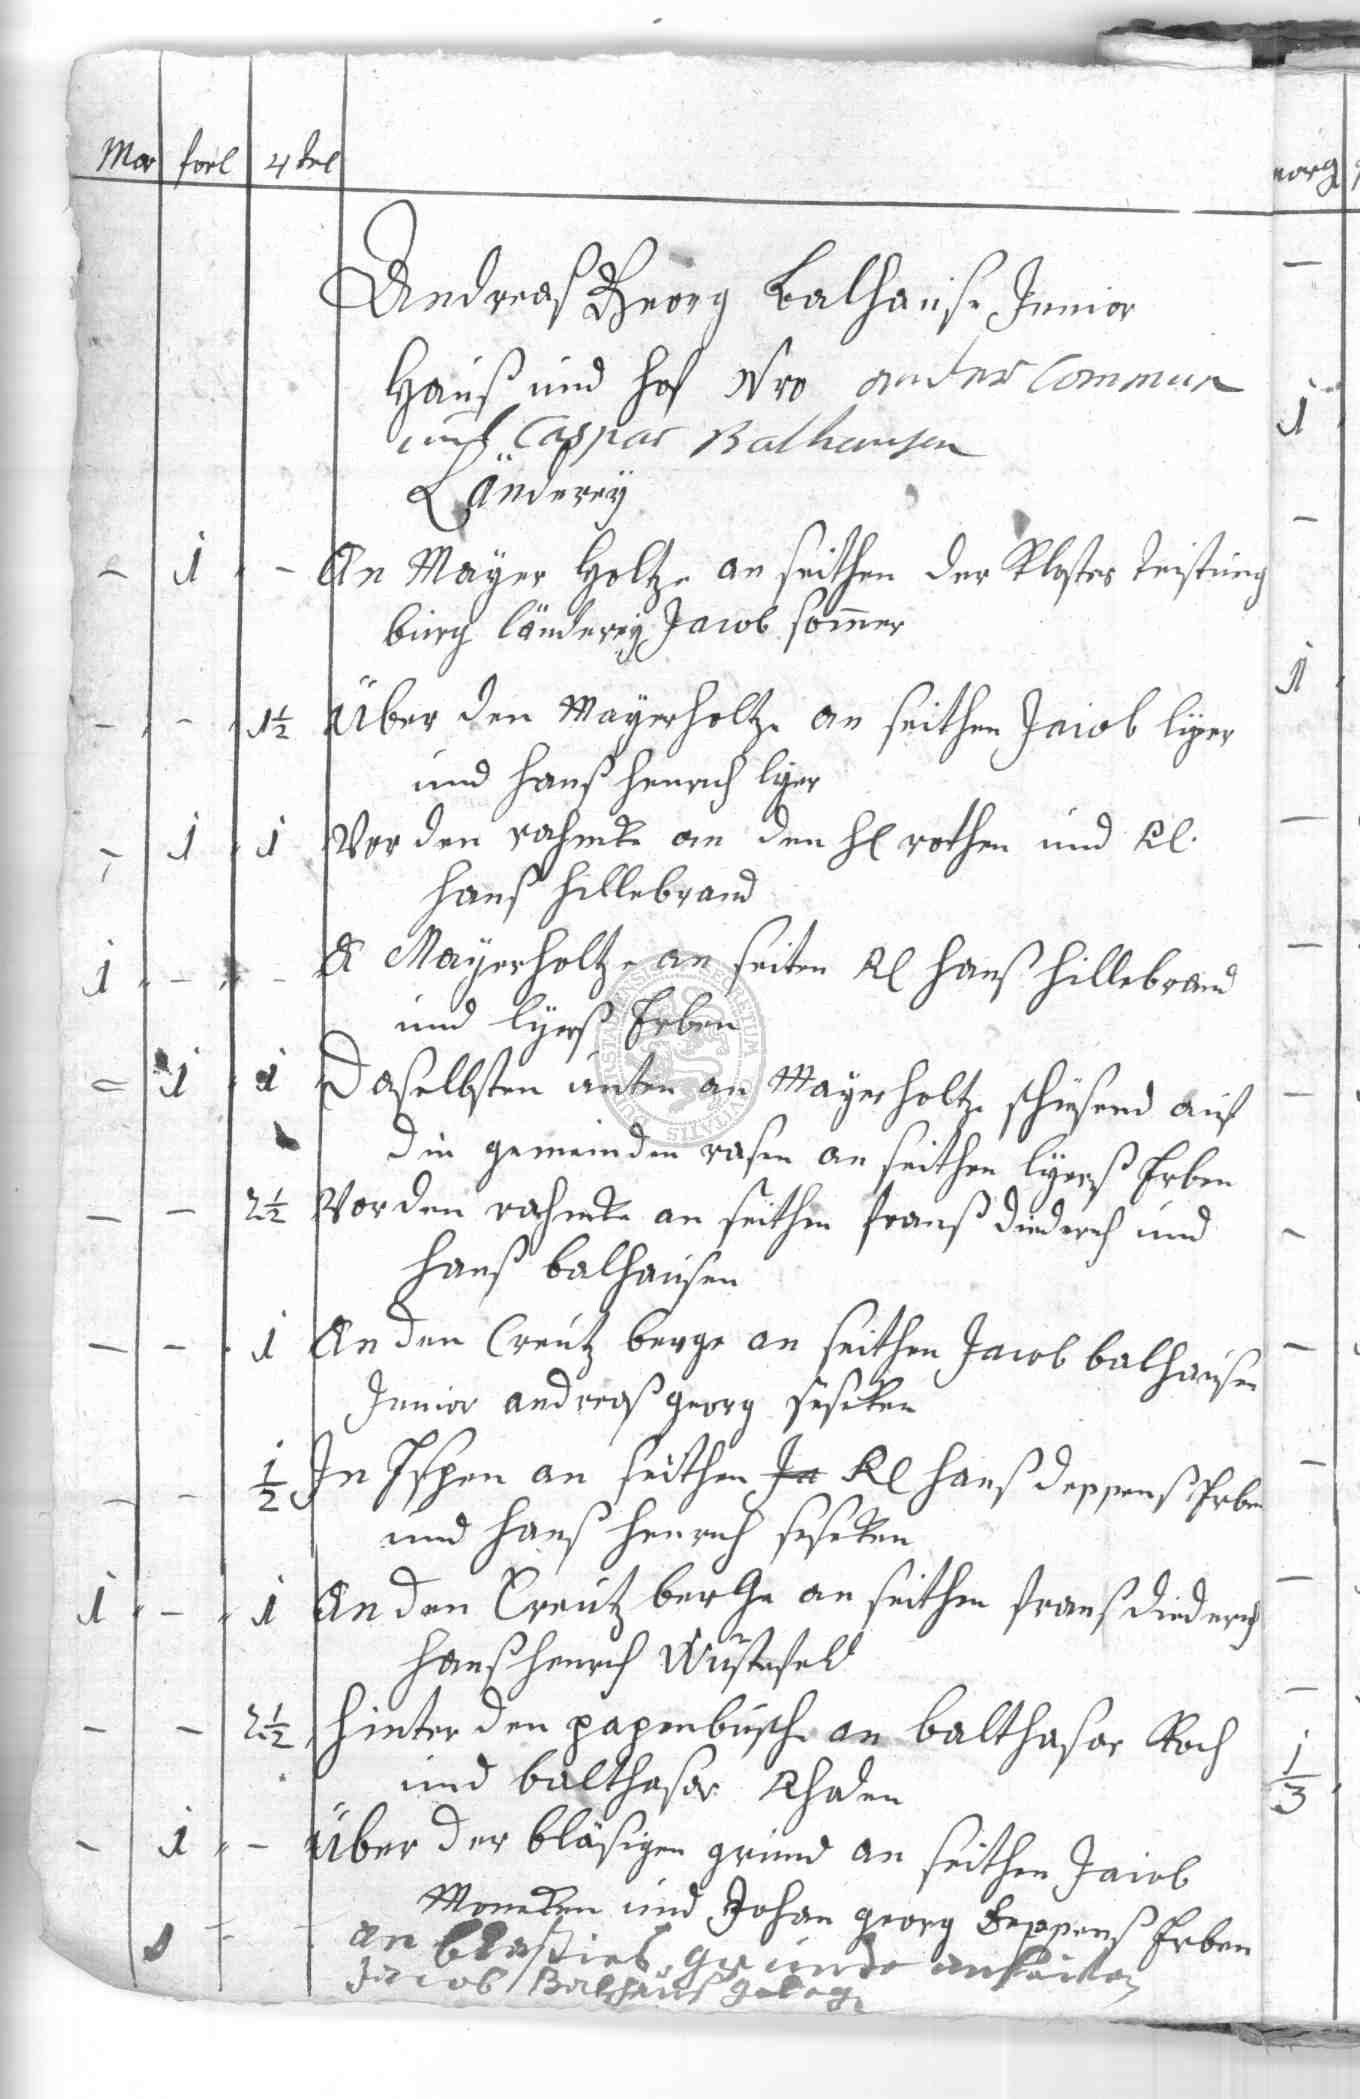 Mor forl 4tel
Andreas Georg Balhause Junior
Hauß und hof Nro an der Commun
und Caspar Balhausen
Länderey
- 1 - An Mayer Holtze an seithen der Kloster Teistung
burg länderey Jacob sommer
- - 1½ Über den Mayerholtze an seithen Jacob lyer
und hanß henrich lyer
- 1 1 Vor den an den hl rothen und Kl.
hanß hillebrand
1 - - A Mayerholtze an seiten Kl hanß hillebrand
und lyerß Erben
- 1 1 Daselbsten unten an Mayerholtze schiesend auf
die gemeinden rasen an seithen lyerß Erben
- - 2½ Vor den an seithen franß diederich und
hanß balhausen
- - 1 An den Creutz berge an seithen Jacob balhausen
Junior andreas georg
- - ½ In Espen an seithen Kl hanß deppenß Erben
und hanß henrich
1 - 1 An den Creutz berge an seithen franß diederich
hanß henrich Wüstefeld
- - 2½ hinter den papenbusch an balthasar Koch
und balthasar Rhoden
- 1 - Über der bläsigen grund an seithen Jacob
Moneken und Johan georg Deppenß Erben
1 - - an grunde an seiten
Jacob Balhauß
morg
1
1
1/3